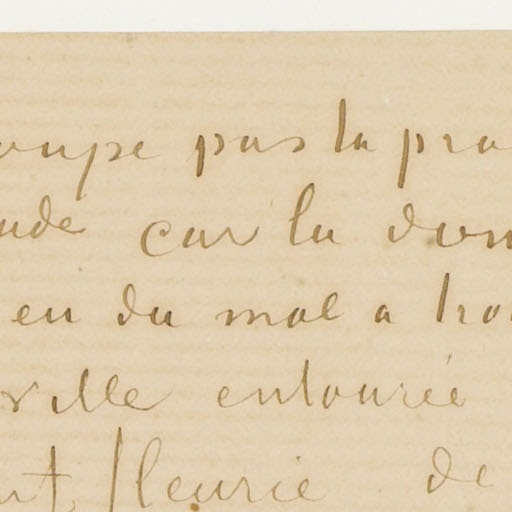 oupe pas la pro
ude car la don
eu du mal a tro
ville entourée
nt fleurie de